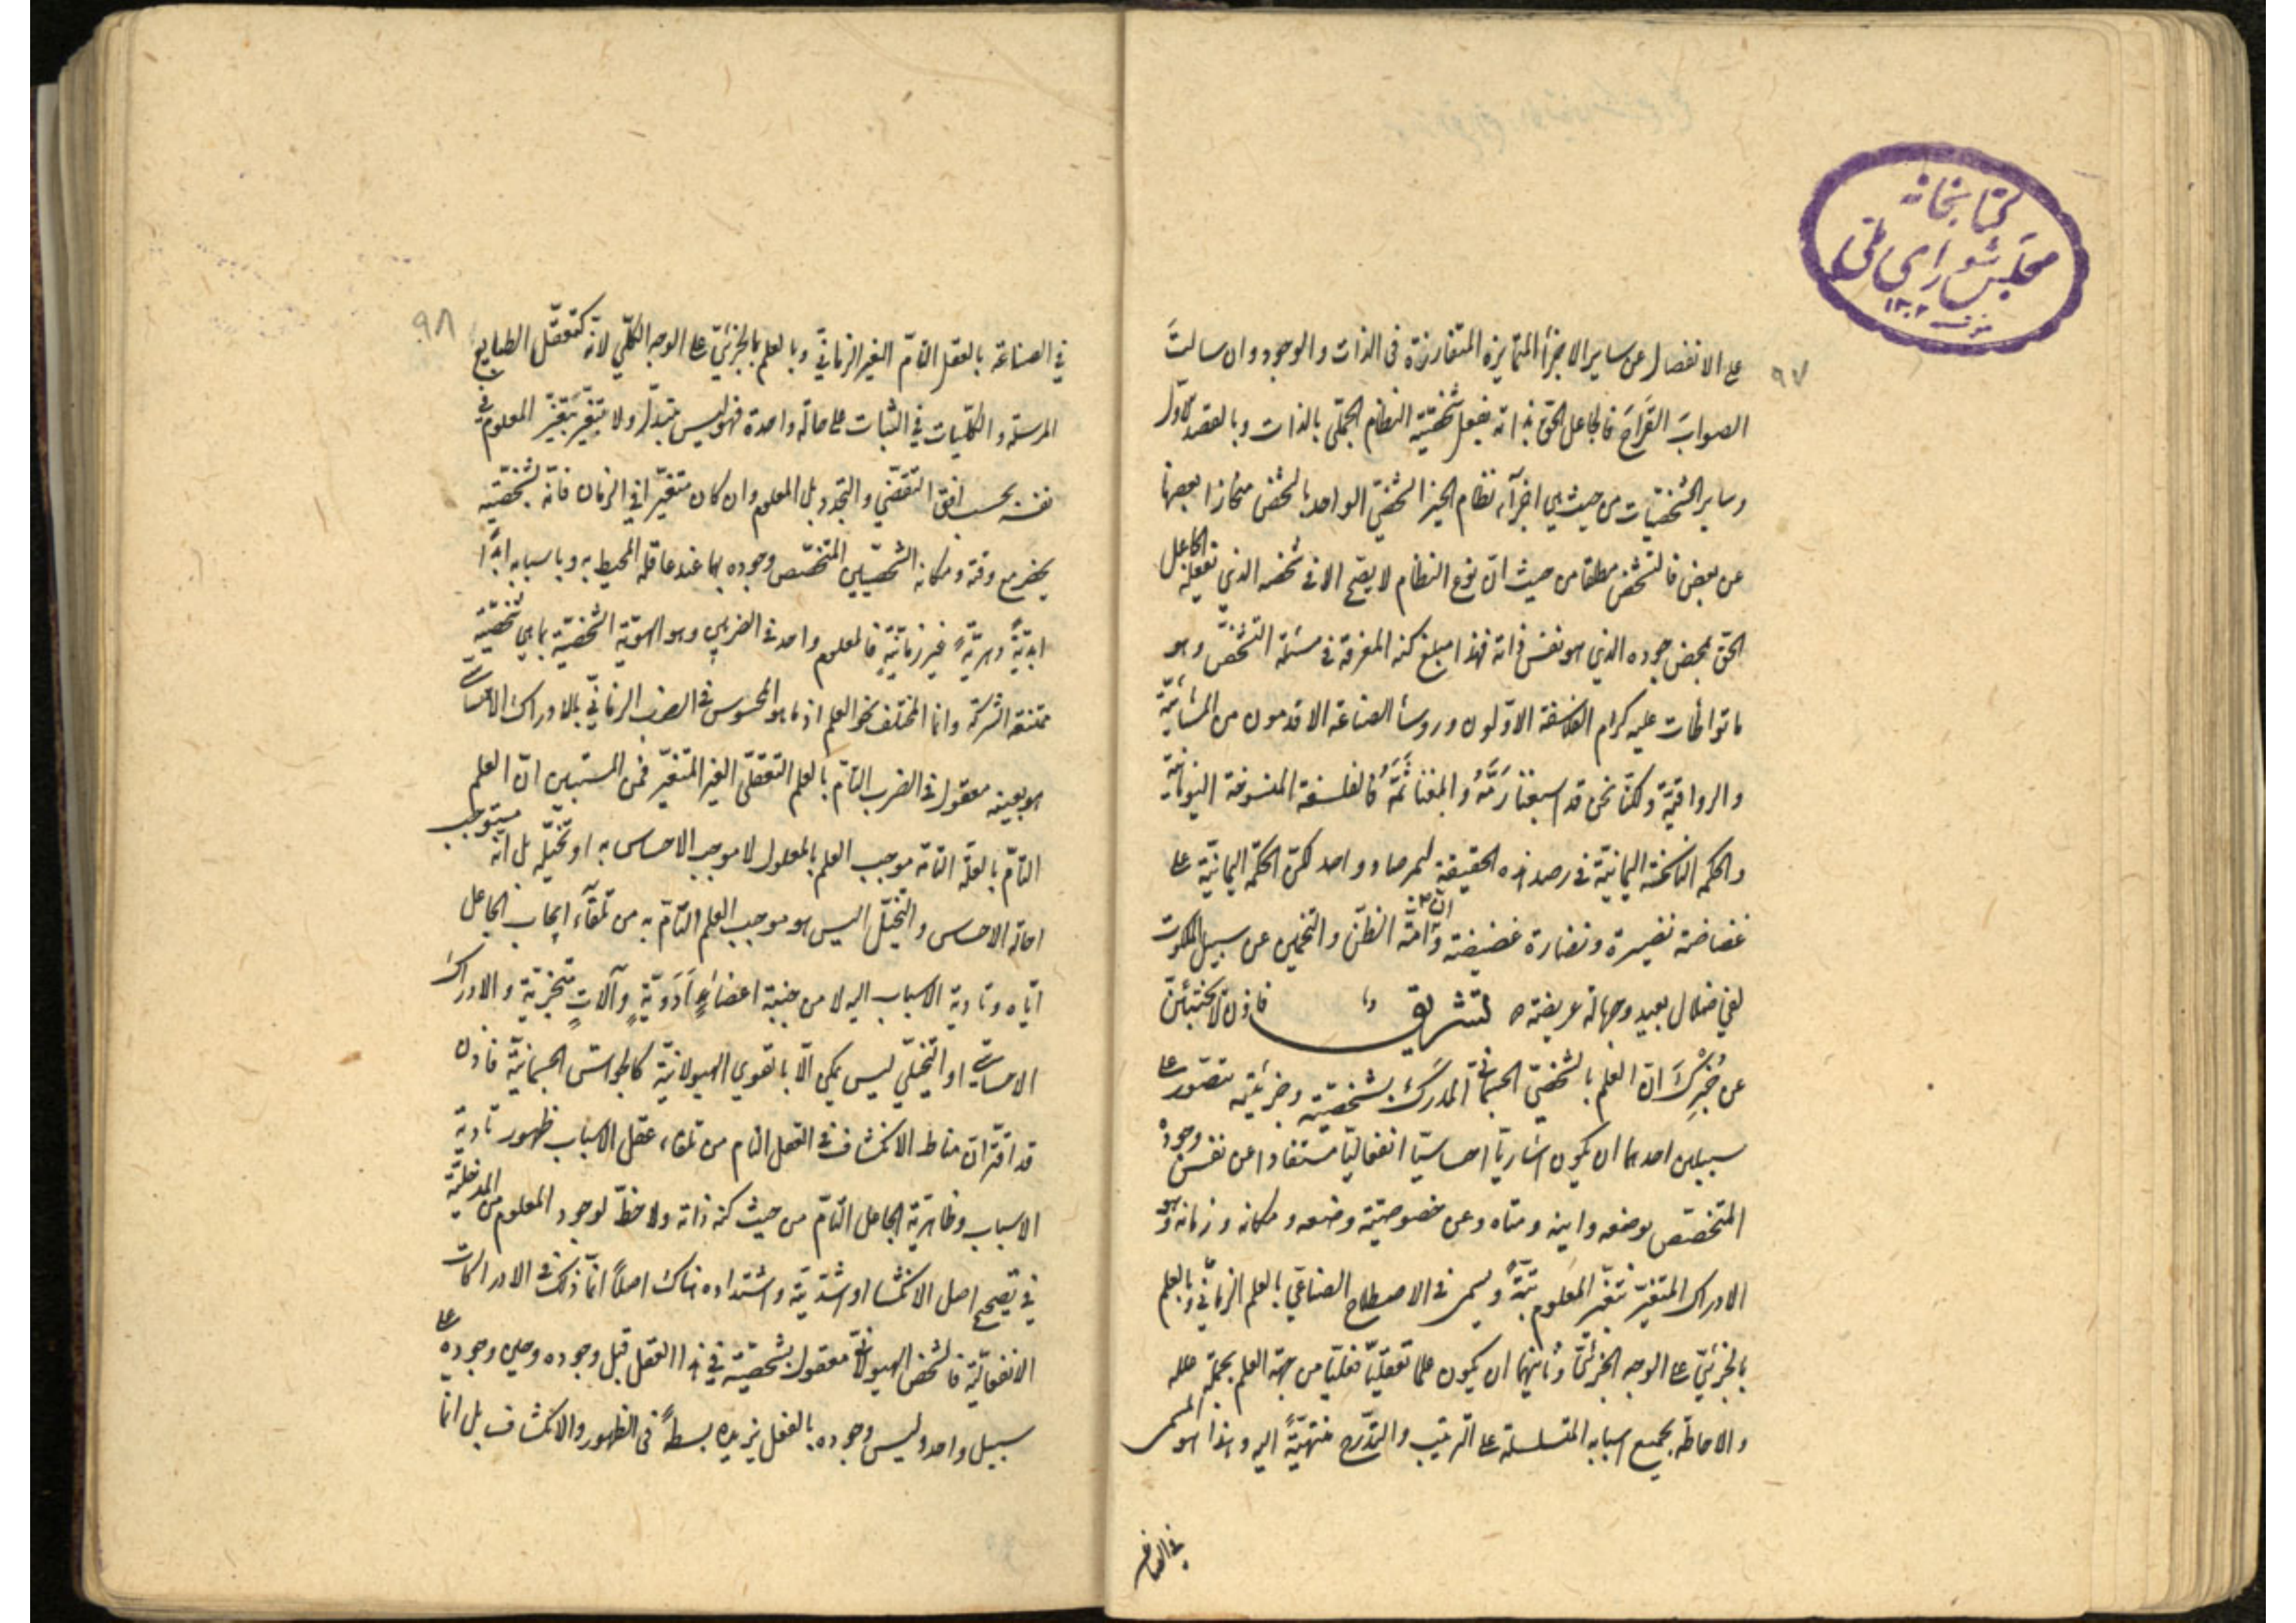 كتابخانه
مجلس شورای ملی
١٣٠٢
٩٧
على الانفصال عن ساير الاجزأ المتمايزة المتفارزة فى الذات والوجود وان سالتَ
الصوابَ القَراحَ فالجاعل الحق بذاته يفعل شخصيّة النظام الجملي بالذات وبالقصد الاول
وساير الشخصيّات من حيث هي اجزآء نظام الخير الشخصي الواحد بالشخص منحازا بعضها
عن بعض فالتشخّص مطلقا من حيث انّ نوع النظام لا يصحّ الا فى شخصه الذي يفعله الجاعل
الحق بمحض جوده الذي هو نفس ذاته فهذا مبلغ كنه المعرفة فى مسئلة التشخّص وهو
ما تواطأت عليه كرام الفلاسفة الاوّلون وروسأ الصناعة الاقدمون من المشائيّة
والرواقيّة ولكنّا نحن قد اسبغنا رَمَّهُ وابلغنا ثَمَّهُ فالفلسفة المنسوخة اليونانيّة
والحكمة الناسخة اليمانيّة فى رصد هذه الحقيقة لبمرصاد واحد لكنّ الحكمة اليمانيّة على
غضاضة نضيرة ونضارة غضيضة وامّة الظنّ والتخمين عن سبيل الملكوت
لفي ضلال بعيد وجهالة عريضة ٥ تشريق فاذن لا تختبئنّ
عن خُبْرِكَ انّ العلم بالشخصيّ الجسمانيّ المدرَك بشخصيّته وجزئيّته يتصوّر على
سبيلين احدهما ان يكون اشاريّا احساسيّا انفعاليّا مستفادا عن نفس وجوده
المتخصّص بوضعه وأينه ومتاه وعن خصوصيّة وضعه ومكانه وزمانه وهو
الادراك المتغيّر بتغيّر المعلوم بتّةً ويسمى فى الاصطلاح الصناعي بالعلم الزمانيّ وبالعلم
بالجزئيّ على الوجه الجزئيّ وثانيهما ان يكون علما تعقليّا فعليّا من جهة العلم بجملة علله
والاحاطة بجميع اسبابه المتسلسلة على الترتيب والتدرّج منتهيّةً اليه وهذا هو المسمى
في الصناعة
٩٨
في الصناعة بالعقل التامّ الغير الزمانيّ وبالعلم بالجزئيّ على الوجه الكلّي لانّه كتعقّل الطبايع
المرسلة والكلّيات في الثبات على حالة واحدة فهو ليس يتبدّل ولا يتغيّر بتغيّر المعلوم في
نفسه بحسب افق التقضّي والتجدّد بل المعلوم وان كان متغيّرا في الزمان فانّه بشخصيّته
يحضر مع وقته ومكانه الشخصيّين المتخصّص وجوده بهما عند عاقله المحيط به وباسبابه ابداً
ابديّةً دهريّةً غير زمانيّةٍ فالمعلوم واحد فى الضربين وهو الهويّة الشخصيّة بما هي شخصيّة
ممتنعة الشركة وانما المختلف نحو العلم اذ ما هو المحسوس فى الضرب الزمانيّ بالادراك الاحساسيّ
هو بعينه معقول فى الضرب التامّ بالعلم التعقّلي الغير المتغيّر فمن المستبين انّ العلم
التامّ بالعلّة التامّة موجب العلم بالمعلول لا موجب الاحساس به او تخيّله بل انّه يستوجب
احالة الاحساس والتخيّل اليس هو موجب العلم التامّ به من تلقآء ايجاب الجاعل
ايّاه وتادية الاسباب اليه لا من جنبة اعضاءٍ ادَويّةٍ وآلاتٍ متجزّيّة والادراك
الاحساسيّ او التخيّلي ليس يمكن الّا بالقوي الهيولانيّة كالحواسّ الجسمانيّة فاذن
قد اقترّ انّ مناط الانكشاف فى التعقل التام من تلقاء عقل الاسباب ظهور تادية
الاسباب وظاهريّة الجاعل التامّ من حيث كنه ذاته ولا حظّ لوجود المعلوم من المدخليّة
في تصحّح اصل الانكشاف او شدّيته واشتداده هناك اصلاً انّما ذلك فى الادراكات
الانفعاليّة فالشخص الهيولانيّ معقول بشخصيّته في هذا العقل قبل وجوده وحين وجوده على
سبيل واحد وليس وجوده بالفعل يزيده بسطةً فى الظهور والانكشاف بل انّما